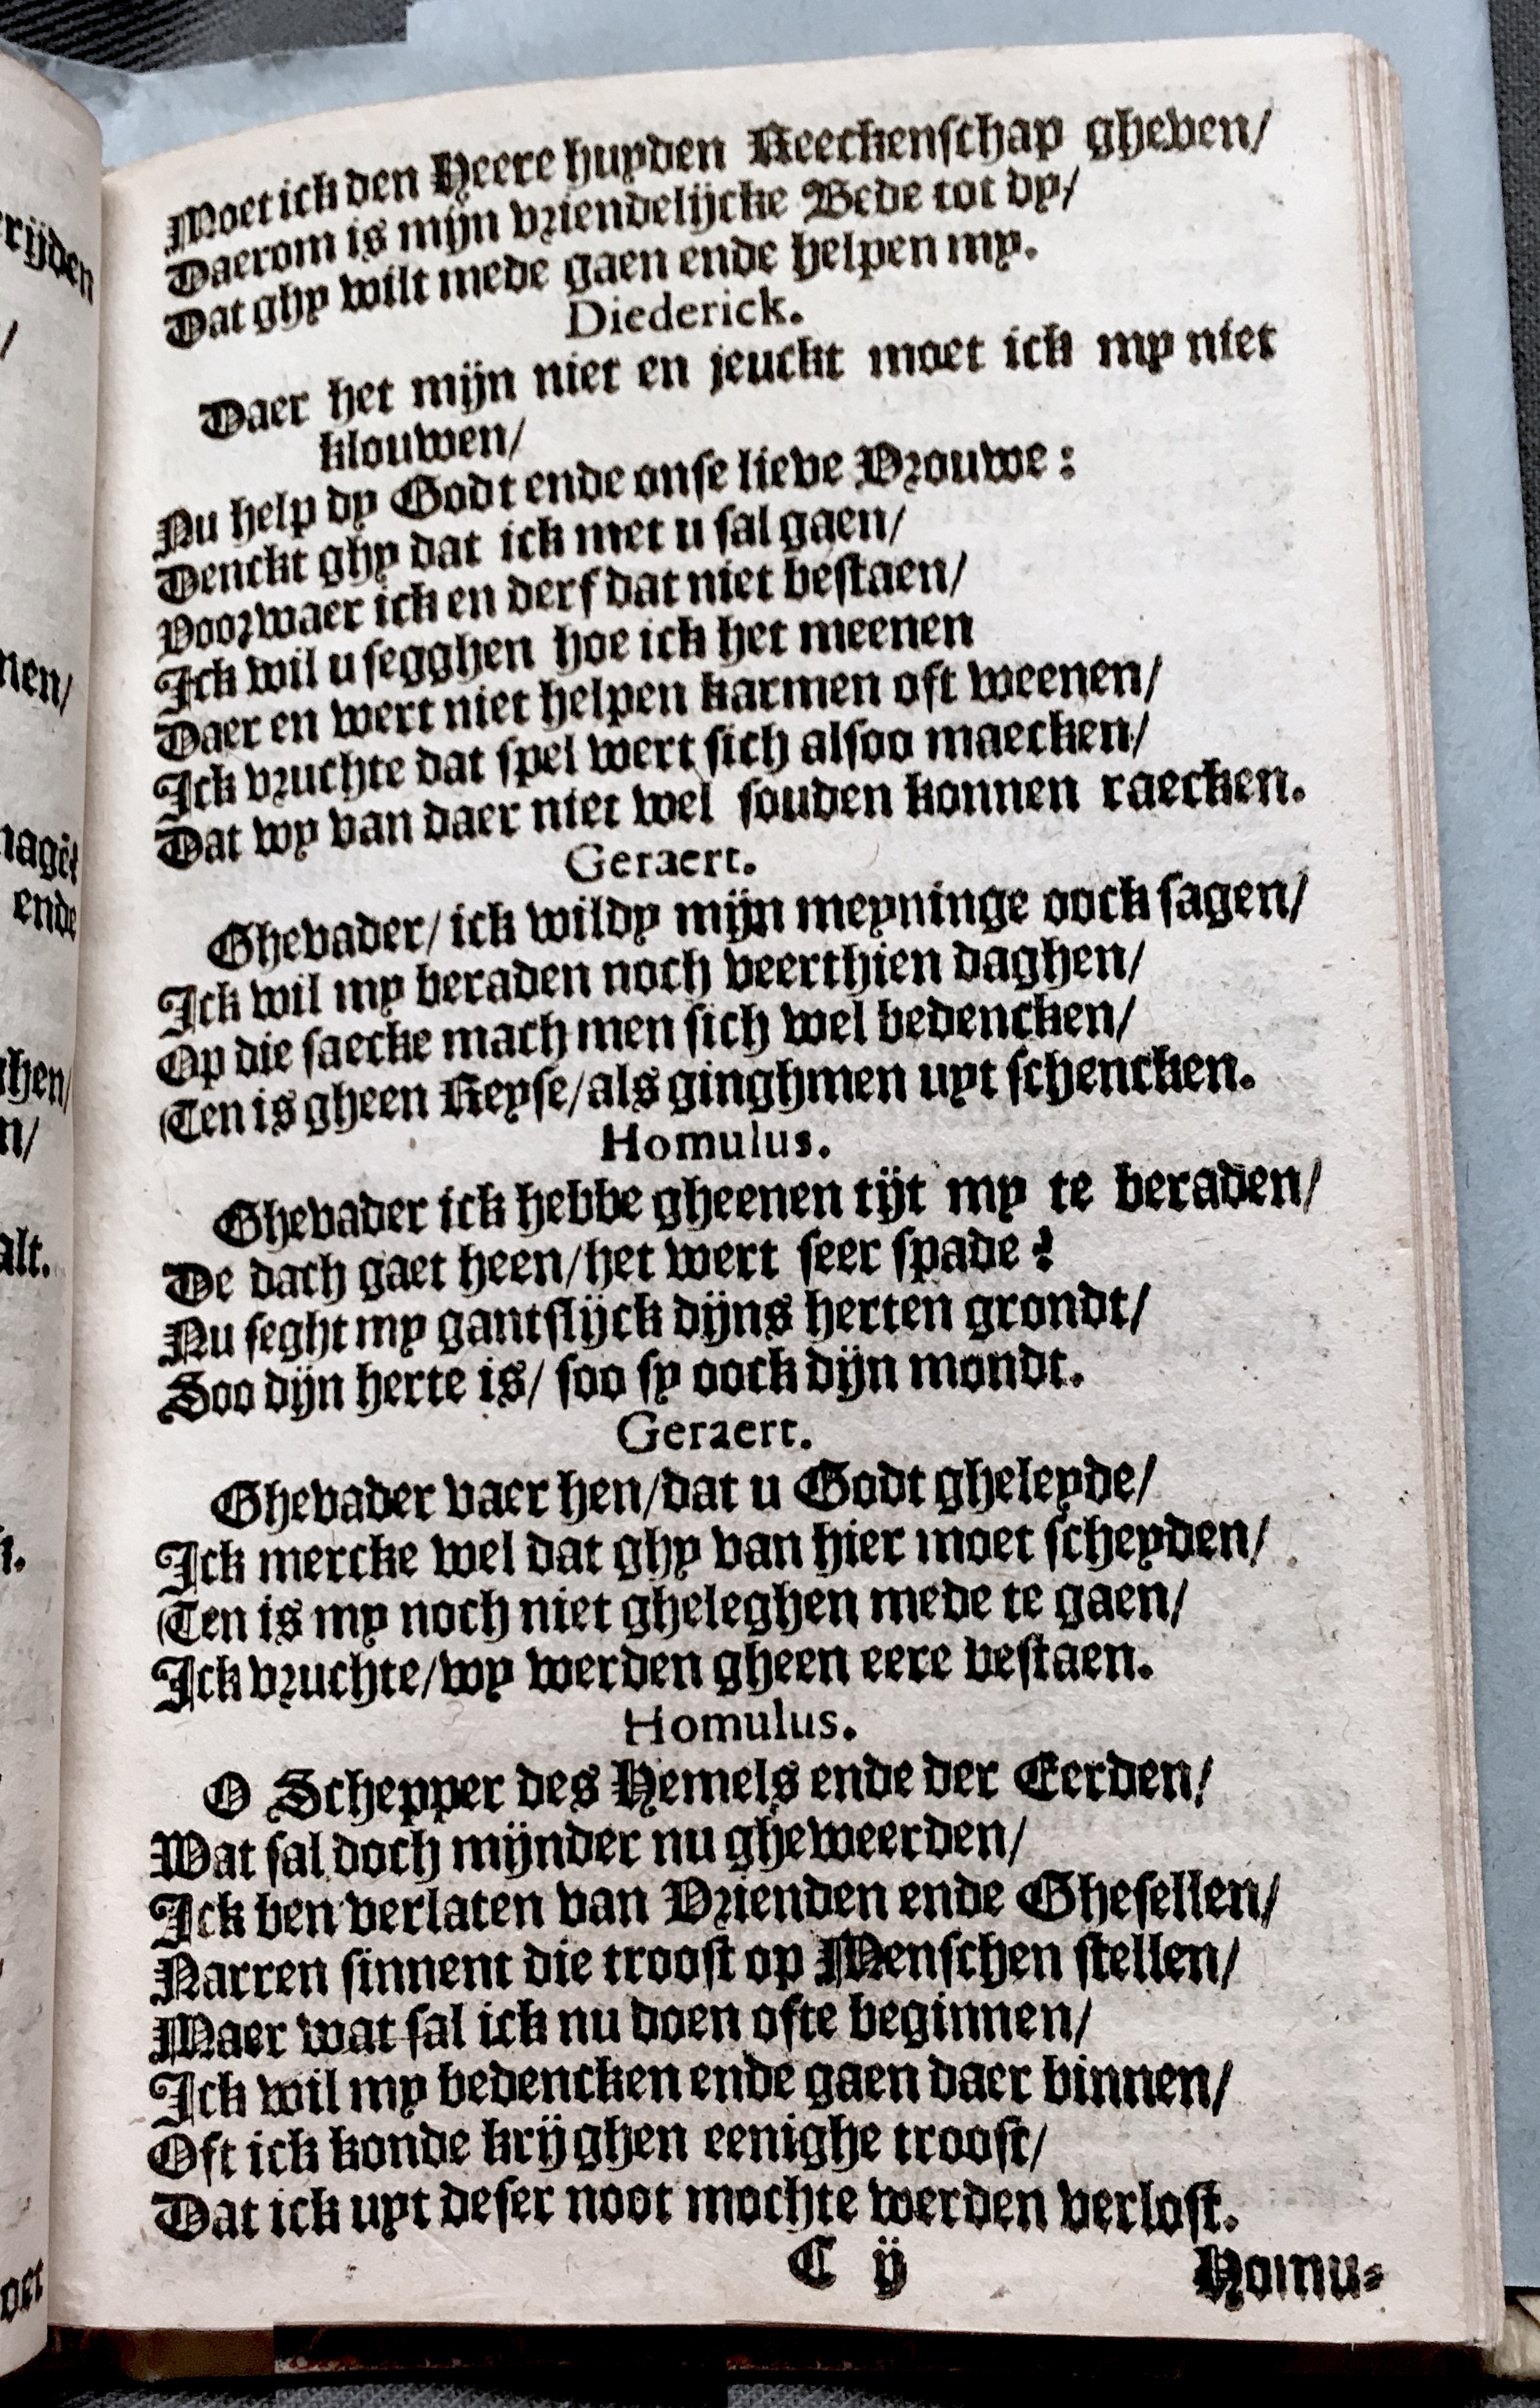 Moet ick den Heere huyden Reeckenschap gheven/
Daerom is mijn vriendelijcke Bede tot dy/
Dat ghy wilt mede gaen ende helpen my.
Diederick.
Daer het mijn niet en jeuckt moet ick my niet
klouwen/
Nu help dy Godt ende onse lieve Vrouwe:
Denckt ghy dat ick met u sal gaen/
Voorwaer ick en derf dat niet bestaen/
Ick wil u segghen hoe ick het meenen
Daer en wert niet helpen karmen oft weenen/
Ick vruchte dat spel wert sich alsoo maecken/
Dat wy van daer niet wel souden konnen raecken.
Geraert.
Ghevader/ ick wil dy mijn meyninge oock sagen/
Ick wil my beraden noch veerthien daghen/
Op die saecke mach men sich wel bedencken/
Ten is gheen Reyse/ als ginghmen uyt schencken.
Homulus.
Ghevader ick hebbe gheenen tijt my te beraden/
De dach gaet heen/ het wert seer spade?
Nu seght my gantslijck dijns herten grondt/
Soo dijn herte is/ soo sy oock dijn mondt.
Geraert.
Ghevader vaer hen/ dat u Godt gheleyde/
Ick mercke wel dat ghy van hier moet scheyden/
Ten is my noch niet gheleghen mede te gaen/
Ick vruchte/ wy werden gheen eere bestaen.
Homulus.
O Schepper des Hemels ende der Eerden/
Wat sal doch mijnder nu gheweerden/
Ick ben verlaten van Vrienden ende Ghesellen/
Narren sinnent die troost op Menschen stellen/
Maer wat sal ick nu doen ofte beginnen/
Ick wil my bedencken ende gaen daer binnen/
Oft ick konde krijghen eenighe troost/
Dat ick uyt deser noot mochte werden verlost.
C ij Homu-